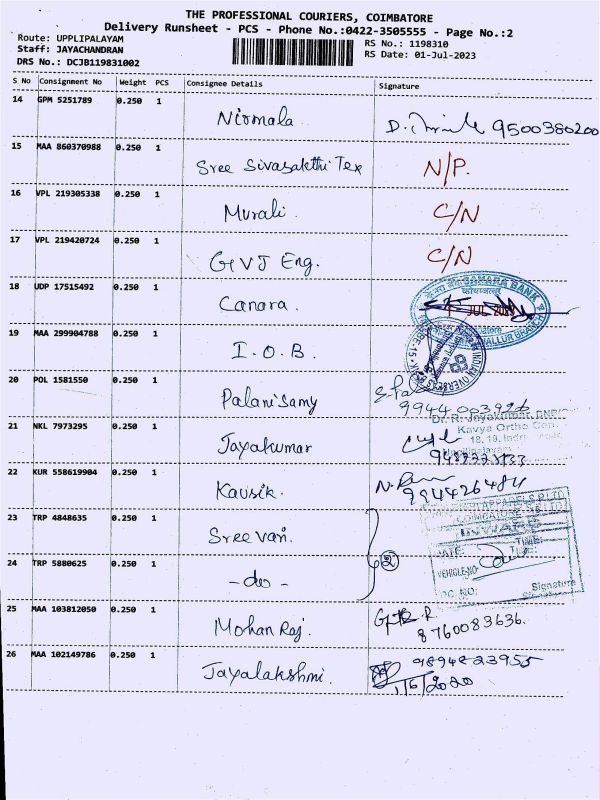 THE PROFESSIONAL COURIERS, COIMBATORE
Delivery Runsheet - PCS - Phone No.:0422-3505555 - Page No.:2
Route: UPPLIPALAYAM
Staff: JAYACHANDRAN
DRS No.: DCJB119831002
RS No.: 1198310
RS Date: 01-Jul-2023
S No Consignment No Weight PCS Consignee Details Signature
14 GPM 5251789 0.250 1 Nirmala 9500380200
15 MAA 860370988 0.250 1 Sree Sivasakthi Tex N/P.
16 VPL 219305338 0.250 1 Murali. C/N
17 VPL 219420724 0.250 1 GVJ Eng. C/N
18 UDP 17515492 0.250 1 Canara. CANARA BANK
JUL
19 MAA 299904788 0.250 1 I.O.B. INDIAN OVERSEAS BANK
20 POL 1581550 0.250 1 Palanisamy
21 NKL 7973295 0.250 1 Jayakumar Dr. R. Jayakumar,
Kavya Ortho
18, 19,
22 KUR 558619904 0.250 1 Kausik.
23 TRP 4848635 0.250 1 Sreevari. 2
INWARD
DATE: TIME:
24 TRP 5880625 0.250 1 -do-
VEHICLE NO
DC. NO: Signature
25 MAA 103812050 0.250 1 Mohan Raj. 8760083636.
26 MAA 102149786 0.250 1 Jayalakshmi.